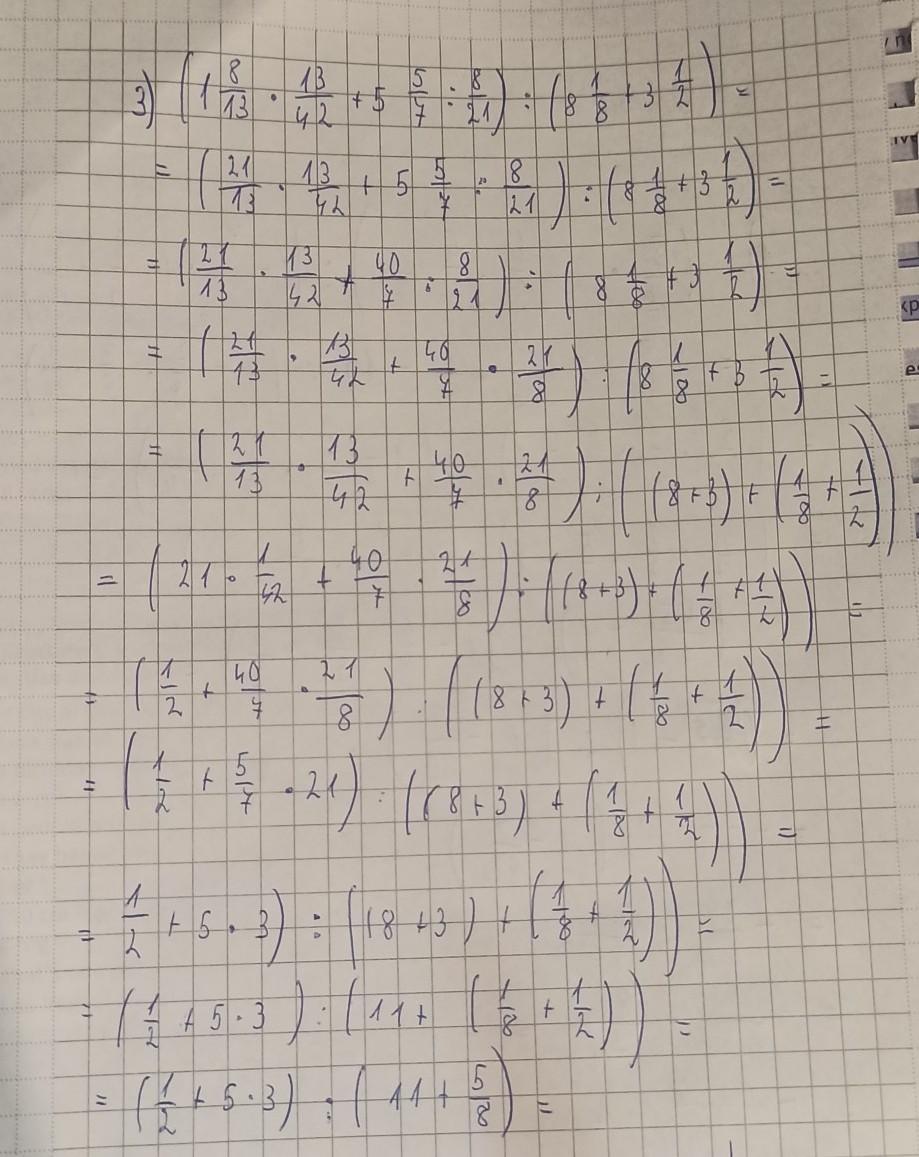 3) (1 8/13 · 13/42 + 5 5/7 : 8/21) : (8 1/8 + 3 1/2) =
= (21/13 · 13/42 + 5 5/7 : 8/21) : (8 1/8 + 3 1/2) =
= (21/13 · 13/42 + 40/7 : 8/21) : (8 1/8 + 3 1/2) =
= (21/13 · 13/42 + 40/7 · 21/8) : (8 1/8 + 3 1/2) =
= (21/13 · 13/42 + 40/7 · 21/8) : ((8+3) + (1/8 + 1/2))
= (21 · 1/42 + 40/7 · 21/8) : ((8+3) + (1/8 + 1/2)) =
= (1/2 + 40/7 · 21/8) : ((8+3) + (1/8 + 1/2)) =
= (1/2 + 5/7 · 21) : ((8+3) + (1/8 + 1/2)) =
= 1/2 + 5 · 3) : ((8+3) + (1/8 + 1/2)) =
= (1/2 + 5 · 3) : (11 + (1/8 + 1/2)) =
= (1/2 + 5 · 3) : (11 + 5/8) =